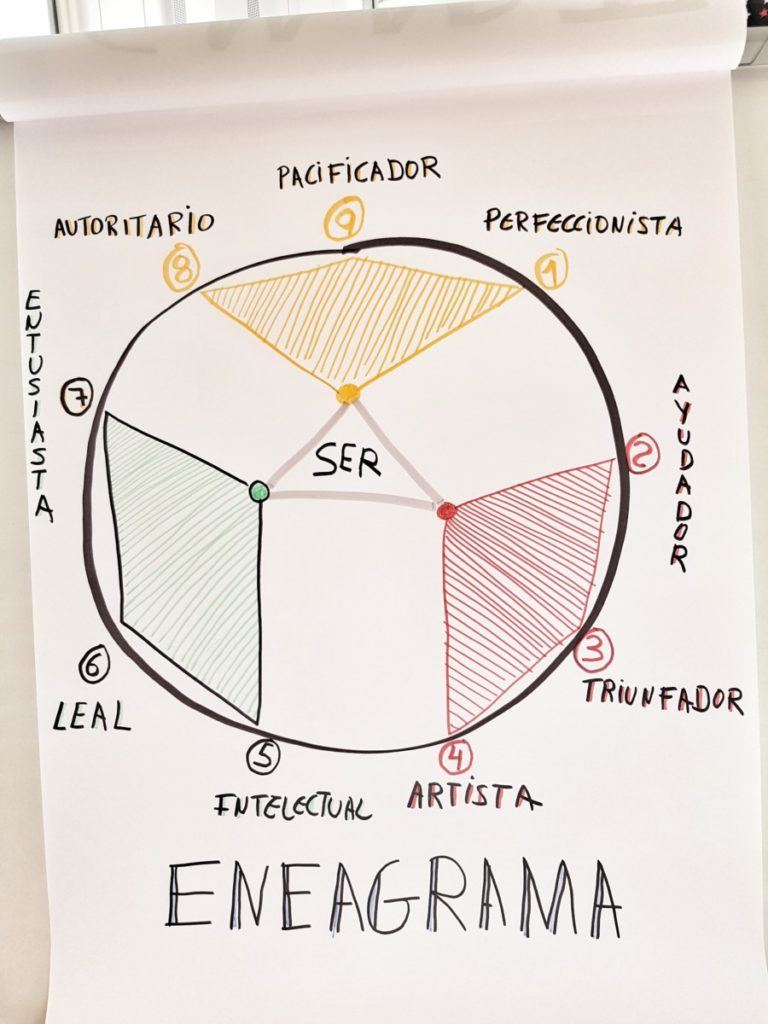 PACIFICADOR
9
AUTORITARIO
8
PERFECCIONISTA
1
ENTUSIASTA
7
AYUDADOR
2
SER
6
LEAL
3
TRIUNFADOR
5
INTELECTUAL
4
ARTISTA
ENEAGRAMA